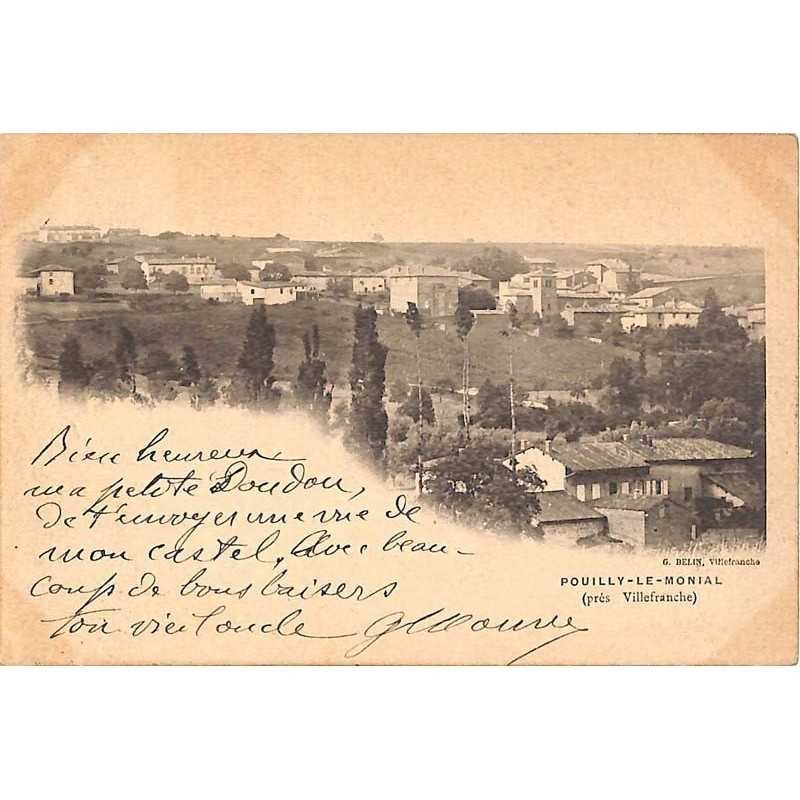 G. BELIN, Villefranche
POUILLY-LE-MONIAL
(près Villefranche)
Bien heureux
ma petite Doudou,
de t'envoyer une vue de
mon castel. Avec beau-
coup de bons baisers
ton vieil oncle